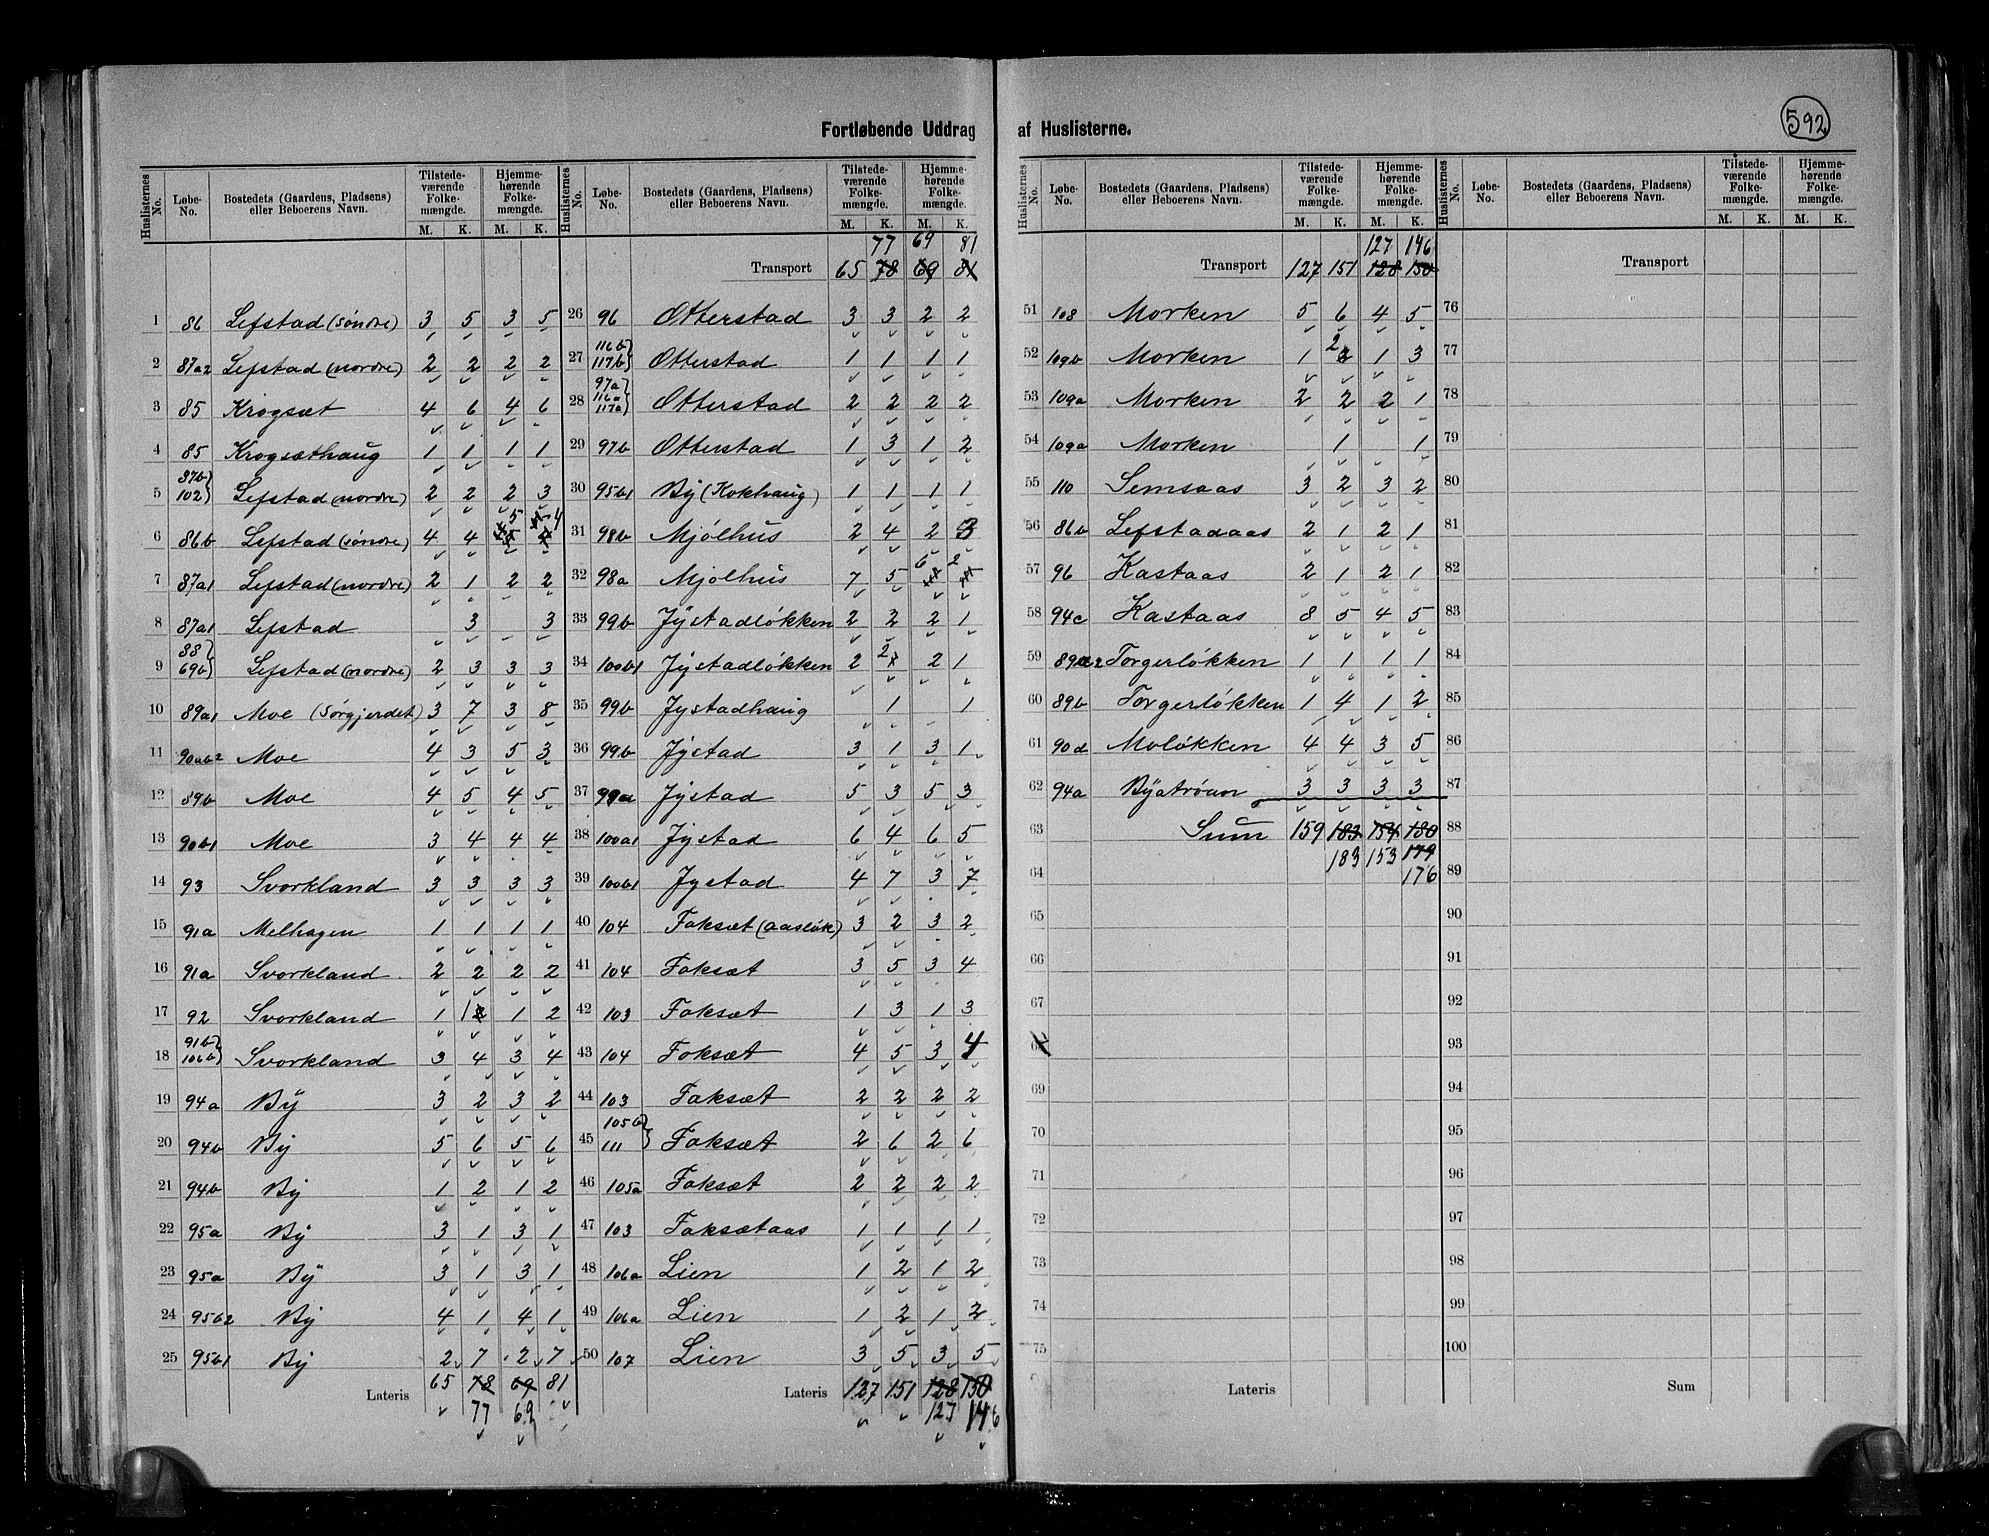 Fortløbende Uddrag af Huslisterne.
592
Huslisternes No. Løbe-No. Bostedets (Gaardens, Pladsens) eller Beboerens Navn. Tilstedeværende Folkemængde. M. K. Hjemmehørende Folkemængde. M. K.
1 86 Lefstad (søndre) 3 5 3 5
2 87a2 Lefstad (nordre) 2 2 2 2
3 85 Krogsæt 4 6 4 6
4 85 Krogsæthaug 1 1 1 1
5 87b 102 Lefstad (nordre) 2 2 2 3
6 86b Lefstad (søndre) 4 4 5 4
7 87a1 Lefstad (nordre) 2 1 2 2
8 87a1 Lefstad 3 3
9 88 69b Lefstad (nordre) 2 3 3 3
10 89a1 Moe (Sørgjerdet) 3 7 3 8
11 90ab2 Moe 4 3 5 3
12 89b Moe 4 5 4 5
13 90b1 Moe 3 4 4 4
14 93 Svorkland 3 3 3 3
15 91a Melhagen 1 1 1 1
16 91a Svorkland 2 2 2 2
17 92 Svorkland 1 1 1 2
18 91b 106b Svorkland 3 4 3 4
19 94a By 3 2 3 2
20 94b By 5 6 5 6
21 94b By 1 2 1 2
22 95a By 3 1 3 1
23 95a By 3 1 3 1
24 95b2 By 4 1 4 1
25 95b1 By 2 7 2 7
Lateris 65 78 69 81
77 69
Huslisternes No. Løbe-No. Bostedets (Gaardens, Pladsens) eller Beboerens Navn. Tilstedeværende Folkemængde. M. K. Hjemmehørende Folkemængde. M. K.
77 69 81
Transport 65 78 69 81
26 96 Otterstad 3 3 2 2
27 116b 117b Otterstad 1 1 1 1
28 97a 116a 117a Otterstad 2 2 2 2
29 97b Otterstad 1 3 1 2
30 95b1 By (Kokhaug) 1 1 1 1
31 98b Mjølhus 2 4 2 3
32 98a Mjølhus 7 5 6 2
33 99b Jystadløkken 2 2 2 1
34 100b1 Jystadløkken 2 2 2 1
35 99b Jystadhaug 1 1
36 99b Jystad 3 1 3 1
37 99a Jystad 5 3 5 3
38 100a1 Jystad 6 4 6 5
39 100b1 Jystad 4 7 3 7
40 104 Foksæt (aasløk) 3 2 3 2
41 104 Foksæt 3 5 3 4
42 103 Foksæt 1 3 1 3
43 104 Foksæt 4 5 3 4
44 103 Foksæt 2 2 2 2
45 105b 111 Foksæt 2 6 2 6
46 105a Foksæt 2 2 2 2
47 103 Foksætaas 1 1 1 1
48 106a Lien 1 2 1 2
49 106a Lien 1 2 1 2
50 107 Lien 3 5 3 5
Lateris 127 151 128 150
127 146
Huslisternes No. Løbe-No. Bostedets (Gaardens, Pladsens) eller Beboerens Navn. Tilstedeværende Folkemængde. M. K. Hjemmehørende Folkemængde. M. K.
127 146
Transport 127 151 128 150
51 108 Morken 5 6 4 5
52 109b Morken 1 2 1 3
53 109a Morken 2 2 2 1
54 109a Morken 1 1
55 110 Semsaas 3 2 3 2
56 86b Lefstadaas 2 1 2 1
57 96 Kastaas 2 1 2 1
58 94c Kastaas 8 5 4 5
59 89a2 Torgerløkken 1 1 1 1
60 89b Torgerløkken 1 4 1 2
61 90d Moløkken 4 4 3 5
62 94a Byatrøen 3 3 3 3
63 Sum 159 183 154 180
183 153 179
64 176
65
66
67
69
70
71
72
73
74
75
Lateris
Huslisternes No. Løbe-No. Bostedets (Gaardens, Pladsens) eller Beboerens Navn. Tilstedeværende Folkemængde. M. K. Hjemmehørende Folkemængde. M. K.
Transport
76
77
78
79
80
81
82
83
84
85
86
87
88
89
90
91
92
93
94
95
96
97
98
99
100
Sum